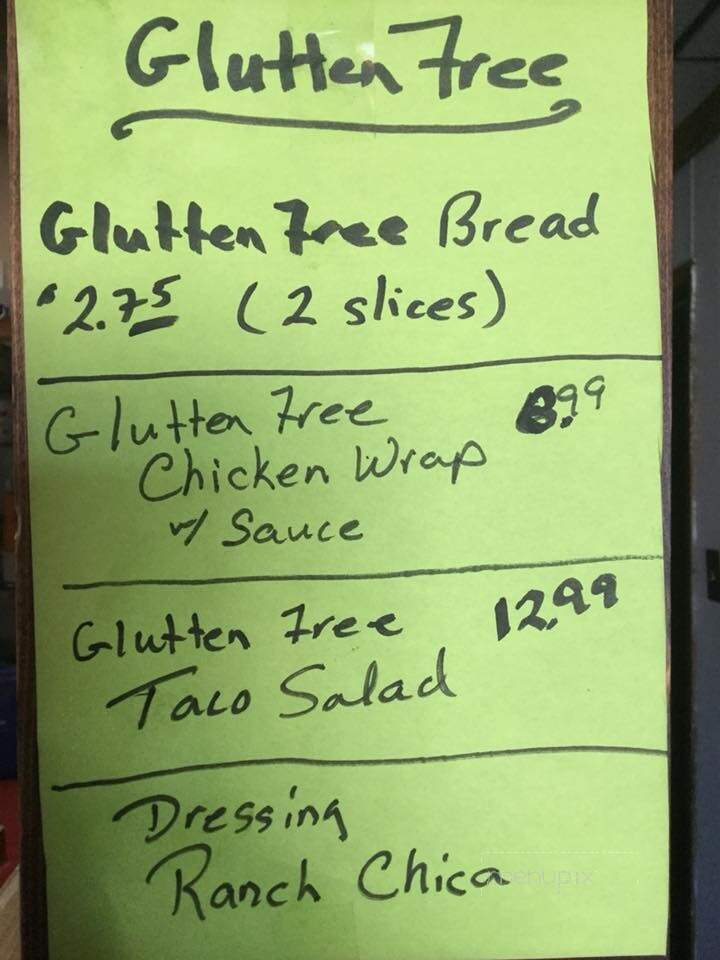 Glutten Free
Glutten Free Bread
$2.75 (2 slices)
Glutten Free 8.99
Chicken Wrap
w/ Sauce
Glutten Free 12.99
Taco Salad
Dressing
Ranch Chica